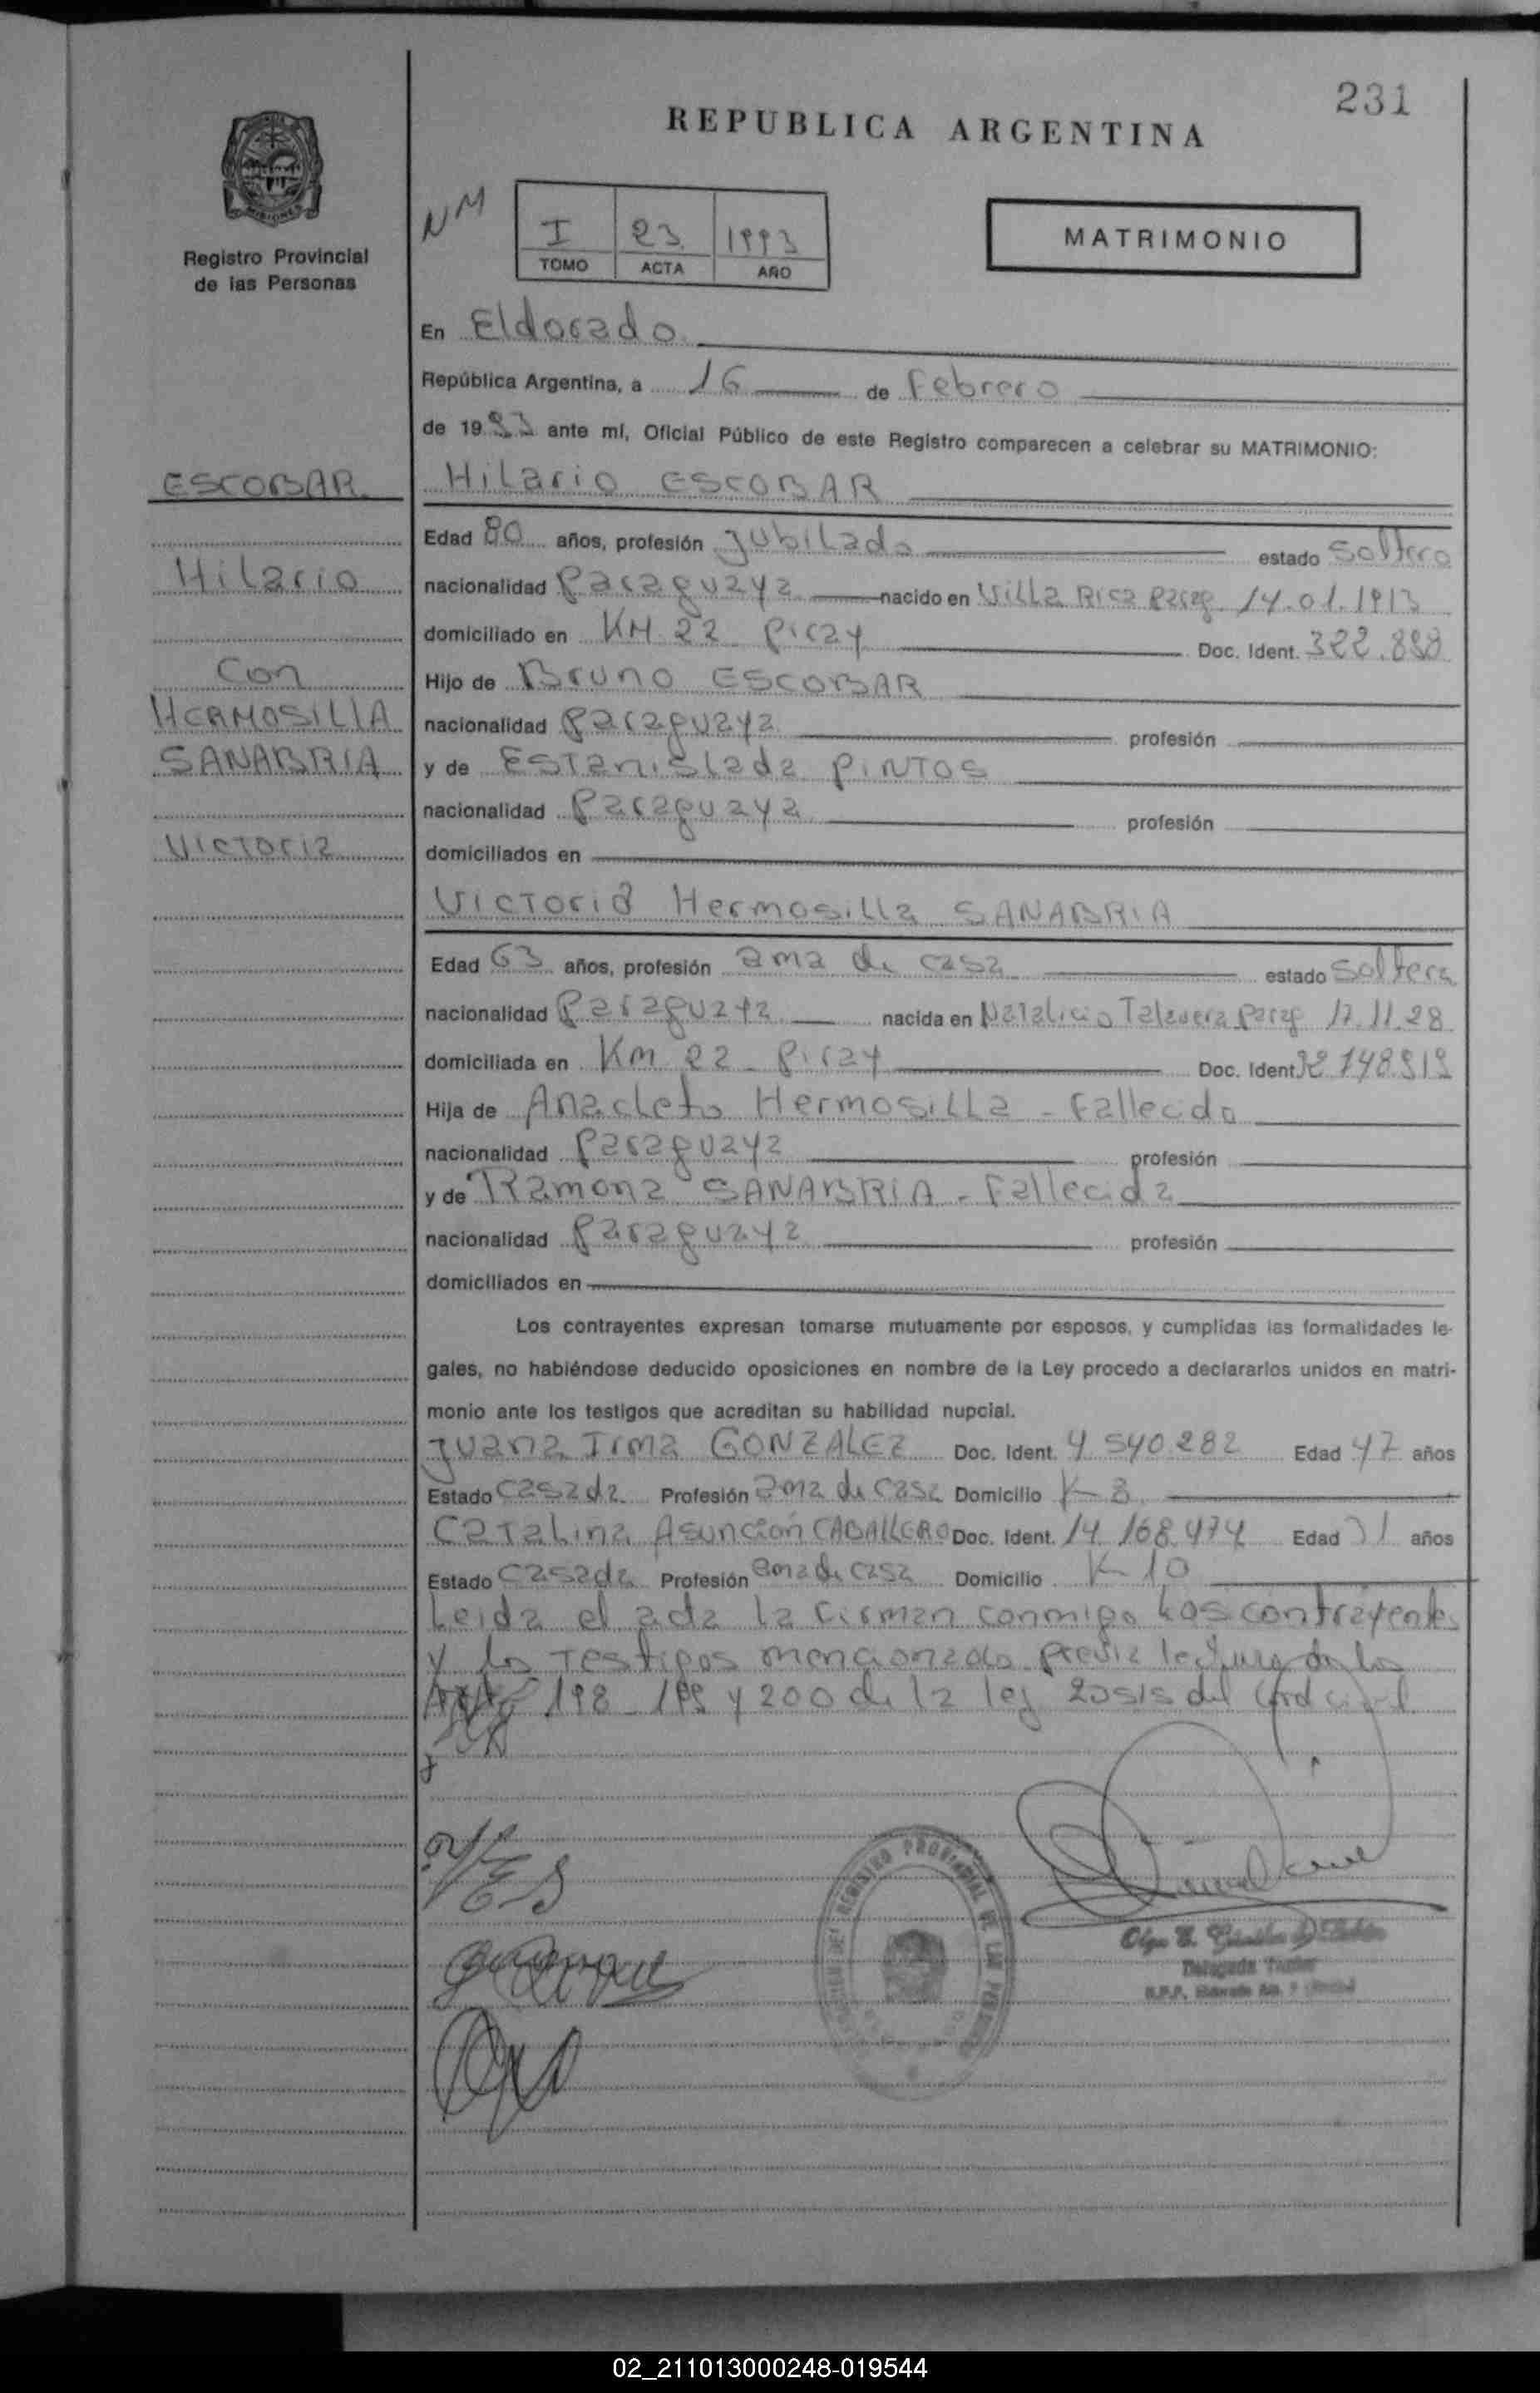 231
REPUBLICA ARGENTINA
MISIONES
Registro Provincial
de las Personas
NM
I 23 1993
TOMO ACTA AÑO
MATRIMONIO
En Eldorado
República Argentina, a 16 de Febrero
de 1993 ante mí, Oficial Público de este Registro comparecen a celebrar su MATRIMONIO:
ESCOBAR
Hilario
Con
HERMOSILLA
SANABRIA
Victoria
Hilario ESCOBAR
Edad 80 años, profesión jubilado estado soltero
nacionalidad paraguaya nacido en Villa Rica Parag. 14.01.1913
domiciliado en KM 22 Piray Doc. Ident. 322.898
Hijo de Bruno ESCOBAR
nacionalidad paraguaya profesión
y de Estanislada PINTOS
nacionalidad Paraguaya profesión
domiciliados en
Victoria Hermosilla SANABRIA
Edad 63 años, profesión ama de casa estado soltera
nacionalidad Paraguaya nacida en Natalicio Talavera Parag 17.11.28
domiciliada en Km 22 - Piray Doc. Ident. 748.919
Hija de Anacleto Hermosilla - Fallecido
nacionalidad paraguaya profesión
y de Ramona SANABRIA - Fallecida
nacionalidad Paraguaya profesión
domiciliados en
Los contrayentes expresan tomarse mutuamente por esposos, y cumplidas las formalidades le-
gales, no habiéndose deducido oposiciones en nombre de la Ley procedo a declararlos unidos en matri-
monio ante los testigos que acreditan su habilidad nupcial.
Juana Irma GONZALEZ Doc. Ident. 4.540.282 Edad 47 años
Estado casada Profesión ama de casa Domicilio K-3
Catalina Asunción CABALLERO Doc. Ident. 14.168.474 Edad 31 años
Estado casada Profesión ama de casa Domicilio K-10
Leida el acta la firman conmigo los contrayentes
y los testigos mencionados previa lectura de los
198 - 199 y 200 de la ley del civil
REGISTRO PROVINCIAL DE LAS
Olga
Delegada Titular
R.P.P.
02_211013000248-019544